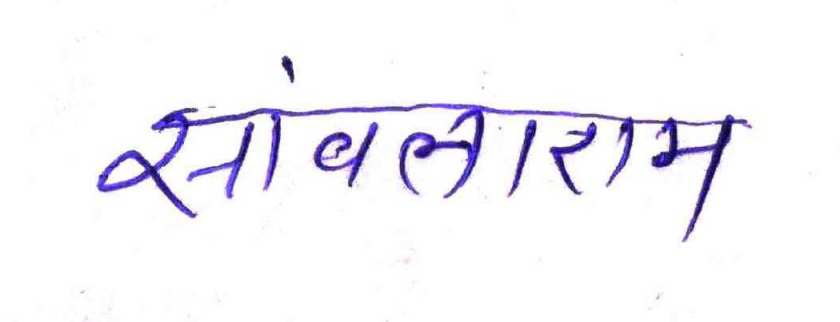 सांवलाराम